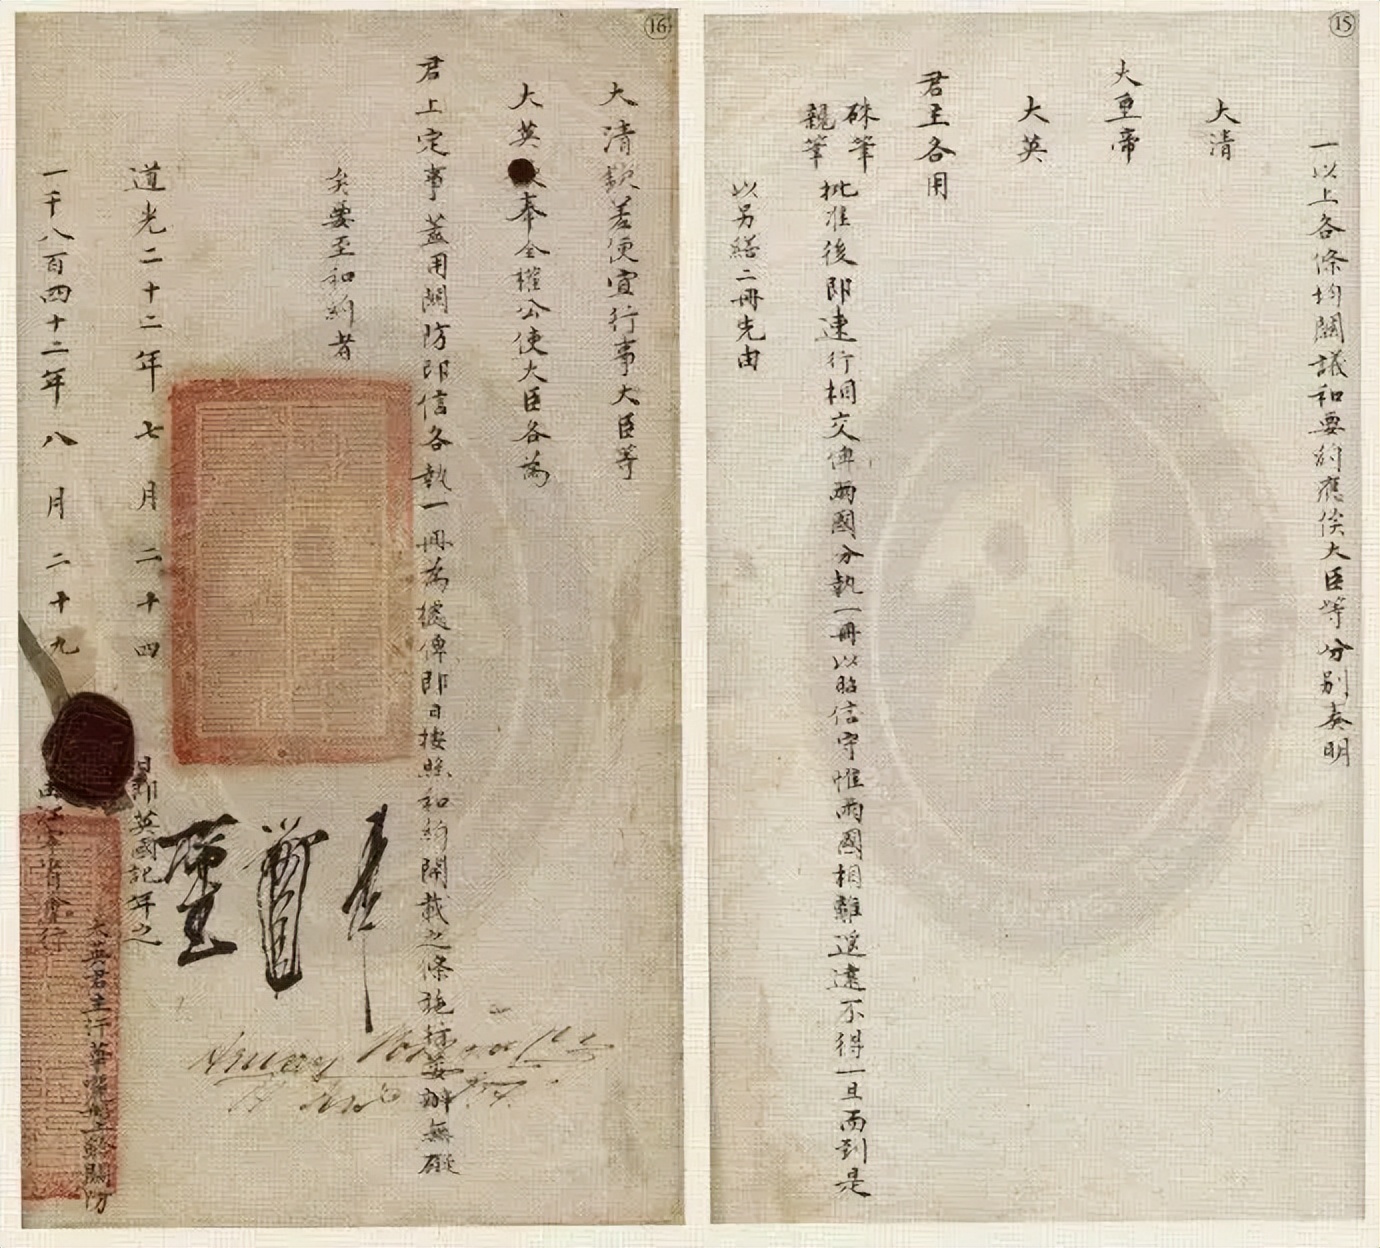 ⑮
一以上各條均關議和要約應俟大臣等分別奏明
大清
大皇帝
大英
君主各用
硃筆
親筆
批准後即速行相交俾兩國分執一冊以昭信守惟兩國相離遙遠不得一旦而到是
以另繕二冊先由
⑯
大清欽差便宜行事大臣等
大英 奉全權公使大臣各為
君上定事蓋用關防印信各執一冊為據俾即日按照和約開載之條施行妥辦無礙
矣要至和約者
道光二十二年七月二十四
日即英國記年之
一千八百四十二年八月二十九
由江寧省會行
大英君主汗華 船上鈐關防